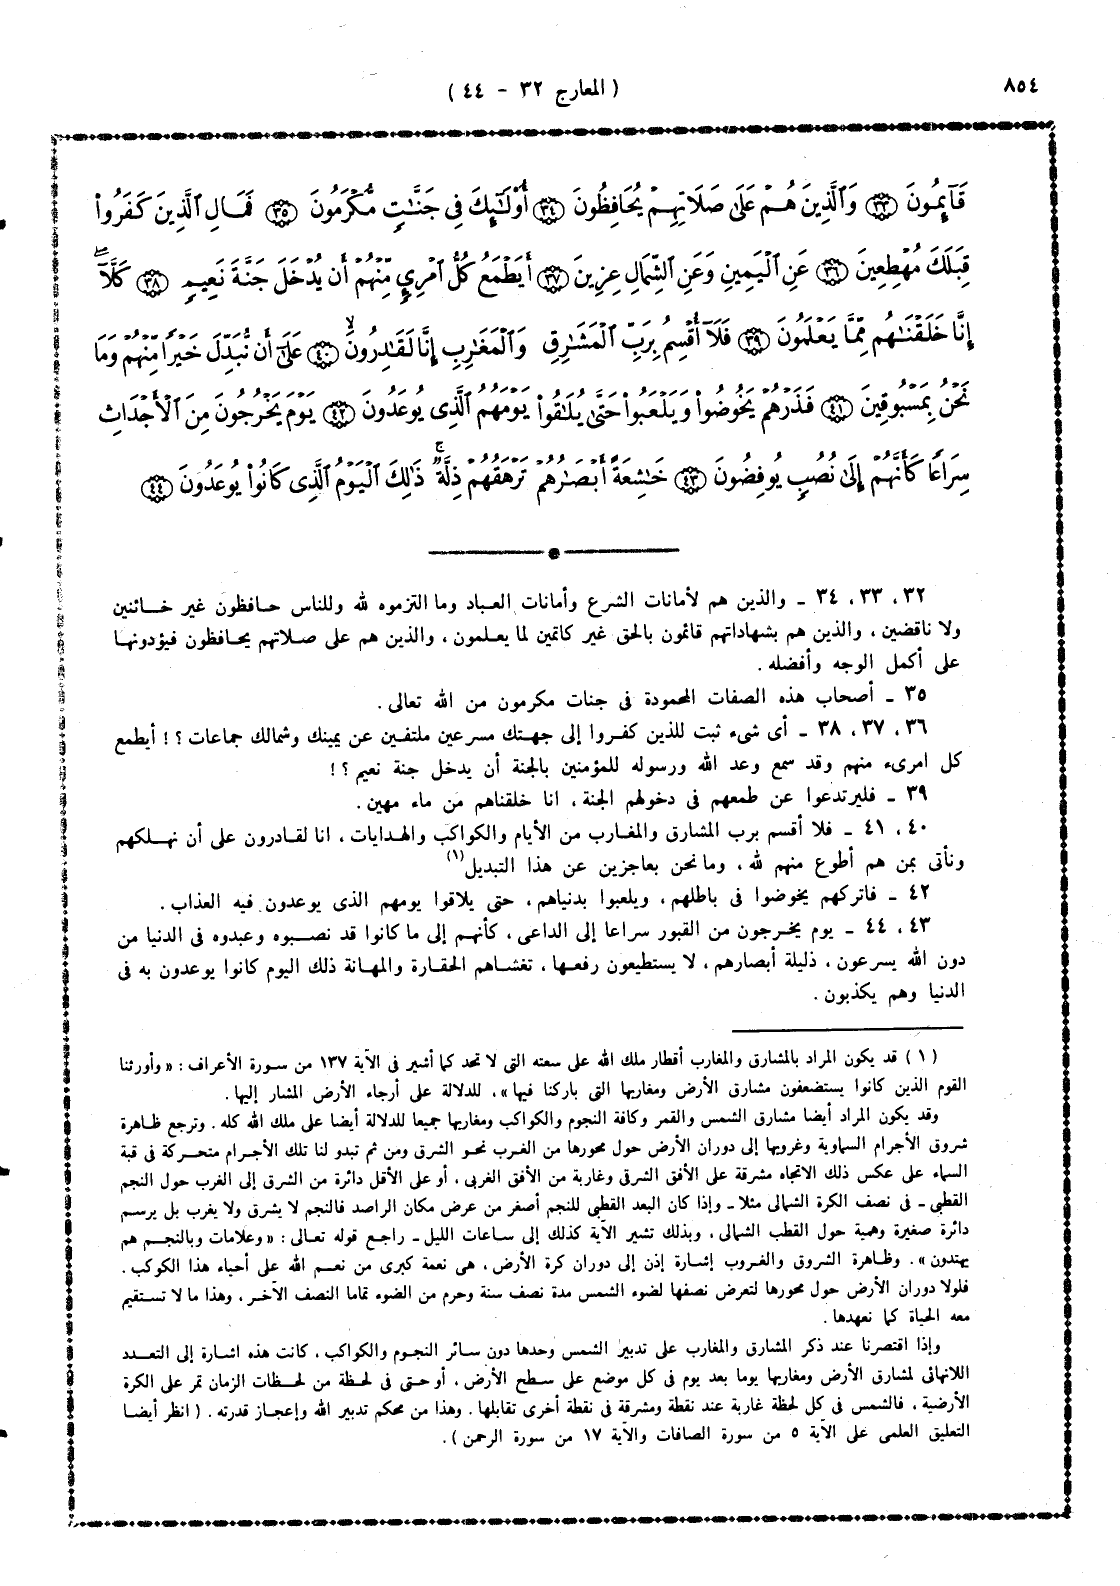 ٨٥٤
( المعارج ٣٢ - ٤٤ )
قَآئِمُونَ ﴿٣٣﴾ وَٱلَّذِينَ هُمْ عَلَىٰ صَلَاتِهِمْ يُحَافِظُونَ ﴿٣٤﴾ أُوْلَٰٓئِكَ فِى جَنَّٰتٍ مُّكْرَمُونَ ﴿٣٥﴾ فَمَالِ ٱلَّذِينَ كَفَرُواْ
قِبَلَكَ مُهْطِعِينَ ﴿٣٦﴾ عَنِ ٱلْيَمِينِ وَعَنِ ٱلشِّمَالِ عِزِينَ ﴿٣٧﴾ أَيَطْمَعُ كُلُّ ٱمْرِئٍ مِّنْهُمْ أَن يُدْخَلَ جَنَّةَ نَعِيمٍ ﴿٣٨﴾ كَلَّآ ۖ
إِنَّا خَلَقْنَٰهُم مِّمَّا يَعْلَمُونَ ﴿٣٩﴾ فَلَآ أُقْسِمُ بِرَبِّ ٱلْمَشَٰرِقِ وَٱلْمَغَٰرِبِ إِنَّا لَقَٰدِرُونَ ۙ ﴿٤٠﴾ عَلَىٰٓ أَن نُّبَدِّلَ خَيْرًا مِّنْهُمْ وَمَا
نَحْنُ بِمَسْبُوقِينَ ﴿٤١﴾ فَذَرْهُمْ يَخُوضُواْ وَيَلْعَبُواْ حَتَّىٰ يُلَٰقُواْ يَوْمَهُمُ ٱلَّذِى يُوعَدُونَ ﴿٤٢﴾ يَوْمَ يَخْرُجُونَ مِنَ ٱلْأَجْدَاثِ
سِرَاعًا كَأَنَّهُمْ إِلَىٰ نُصُبٍ يُوفِضُونَ ﴿٤٣﴾ خَٰشِعَةً أَبْصَٰرُهُمْ تَرْهَقُهُمْ ذِلَّةٌ ۚ ذَٰلِكَ ٱلْيَوْمُ ٱلَّذِى كَانُواْ يُوعَدُونَ ﴿٤٤﴾
٣٢ ، ٣٣ ، ٣٤ ـ والذين هم لأمانات الشرع وأمانات العباد وما التزموه لله وللناس حافظون غير خائنين
ولا ناقضين ، والذين هم بشهاداتهم قائمون بالحق غير كاتمين لما يعلمون ، والذين هم على صلاتهم يحافظون فيؤدونها
على أكمل الوجه وأفضله .
٣٥ ـ أصحاب هذه الصفات المحمودة فى جنات مكرمون من الله تعالى .
٣٦ ، ٣٧ ، ٣٨ ـ أى شىء ثبت للذين كفروا إلى جهتك مسرعين ملتفين عن يمينك وشمالك جماعات ؟ ! أيطمع
كل امرىء منهم وقد سمع وعد الله ورسوله للمؤمنين بالجنة أن يدخل جنة نعيم ؟ !
٣٩ ـ فليرتدعوا عن طمعهم فى دخولهم الجنة ، انا خلقناهم من ماء مهين .
٤٠ ، ٤١ ـ فلا أقسم برب المشارق والمغارب من الأيام والكواكب والهدايات ، انا لقادرون على أن نهلكهم
ونأتى بمن هم أطوع منهم لله ، وما نحن بعاجزين عن هذا التبديل(١)
٤٢ ـ فاتركهم يخوضوا فى باطلهم ، ويلعبوا بدنياهم ، حتى يلاقوا يومهم الذى يوعدون فيه العذاب .
٤٣ ، ٤٤ ـ يوم يخرجون من القبور سراعا إلى الداعى ، كأنهم إلى ما كانوا قد نصبوه وعبدوه فى الدنيا من
دون الله يسرعون ، ذليلة أبصارهم ، لا يستطيعون رفعها ، تغشاهم الحقارة والمهانة ذلك اليوم كانوا يوعدون به فى
الدنيا وهم يكذبون .
( ١ ) قد يكون المراد بالمشارق والمغارب أقطار ملك الله على سعته التى لا تحد كما أشير فى الآية ١٣٧ من سورة الأعراف : « وأورثنا
القوم الذين كانوا يستضعفون مشارق الأرض ومغاربها التى باركنا فيها » ، للدلالة على أرجاء الأرض المشار إليها .
وقد يكون المراد أيضا مشارق الشمس والقمر وكافة النجوم والكواكب ومغاربها جميعا للدلالة أيضا على ملك الله كله . وترجع ظاهرة
شروق الأجرام السماوية وغروبها إلى دوران الأرض حول محورها من الغرب نحو الشرق ومن ثم تبدو لنا تلك الأجرام متحركة فى قبة
السماء على عكس ذلك الاتجاه مشرقة على الأفق الشرقى وغاربة من الأفق الغربى ، أو على الأقل دائرة من الشرق إلى الغرب حول النجم
القطبى ـ فى نصف الكرة الشمالى مثلا ـ وإذا كان البعد القطبى للنجم أصغر من عرض مكان الراصد فالنجم لا يشرق ولا يغرب بل يرسم
دائرة صغيرة وهمية حول القطب الشمالى ، وبذلك تشير الآية كذلك إلى ساعات الليل ـ راجع قوله تعالى : « وعلامات وبالنجم هم
يهتدون » . وظاهرة الشروق والغروب إشارة إذن إلى دوران كرة الأرض ، هى نعمة كبرى من نعم الله على أحياء هذا الكوكب .
فلولا دوران الأرض حول محورها لتعرض نصفها لضوء الشمس مدة نصف سنة وحرم من الضوء تماما النصف الآخر ، وهذا ما لا تستقيم
معه الحياة كما نعهدها .
وإذا اقتصرنا عند ذكر المشارق والمغارب على تدبير الشمس وحدها دون سائر النجوم والكواكب ، كانت هذه اشارة إلى التعدد
اللانهائى لمشارق الأرض ومغاربها يوما بعد يوم فى كل موضع على سطح الأرض ، أو حتى فى لحظة من لحظات الزمان تمر على الكرة
الأرضية ، فالشمس فى كل لحظة غاربة عند نقطة ومشرقة فى نقطة أخرى تقابلها . وهذا من محكم تدبير الله وإعجاز قدرته . ( انظر أيضا
التعليق العلمى على الآية ٥ من سورة الصافات والآية ١٧ من سورة الرحمن ) .